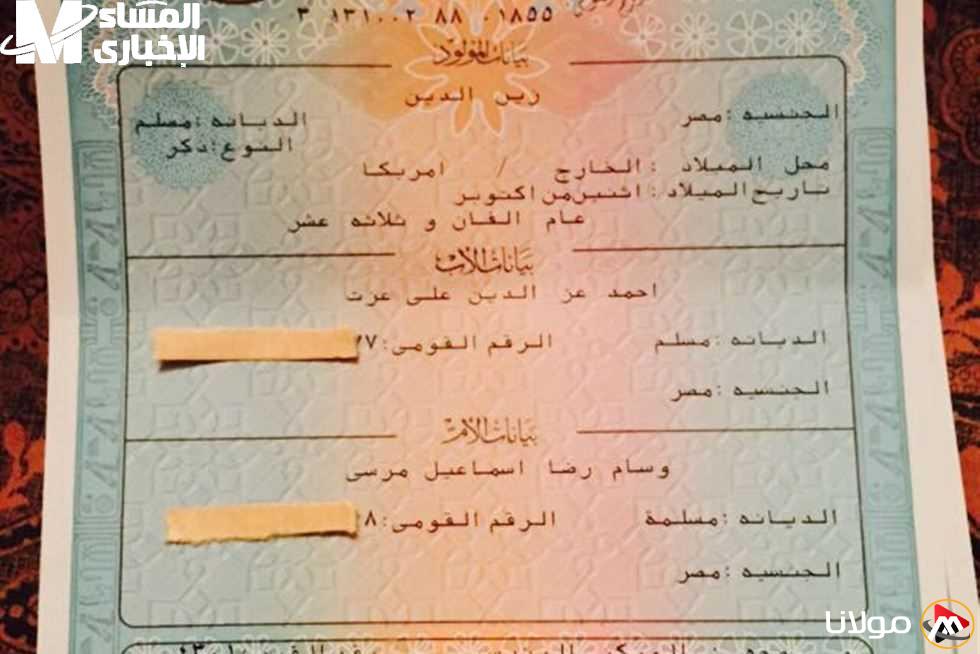 المساء
الإخباري
٣ ١٣١٠٠٢ ٨٨ ٠١٨٥٥
بيانات المولود
زين الدين
الجنسيه :مصر الديانه :مسلم
النوع :ذكر
محل الميلاد :الخارج / امريكا
تاريخ الميلاد :اثنين من اكتوبر
عام الفان و ثلاثه عشر
بيانات الاب
احمد عز الدين على عزت
الديانه :مسلم الرقم القومى:٧٧
الجنسيه :مصر
بيانات الام
وسام رضا اسماعيل مرسى
الديانه :مسلمة الرقم القومى:٨
الجنسيه :مصر
مولانا